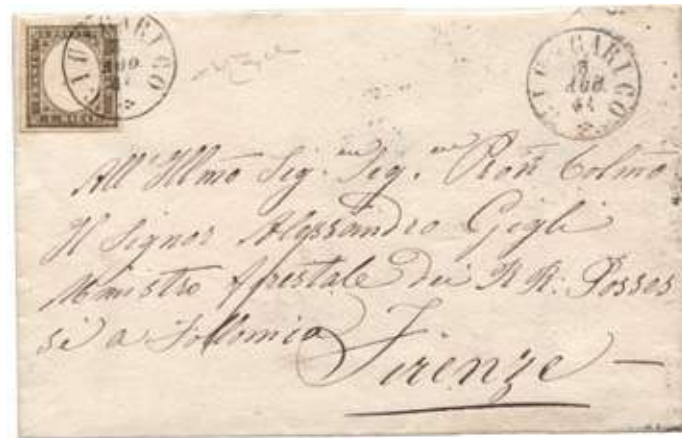 VIGNCARICO
3
AGO
61
All'Illmo Sig. Sig. Pron Colmo
Il Signor Alessandro Gigli
Ministro forestale dei R R: Posses
si a Follonica
Firenze